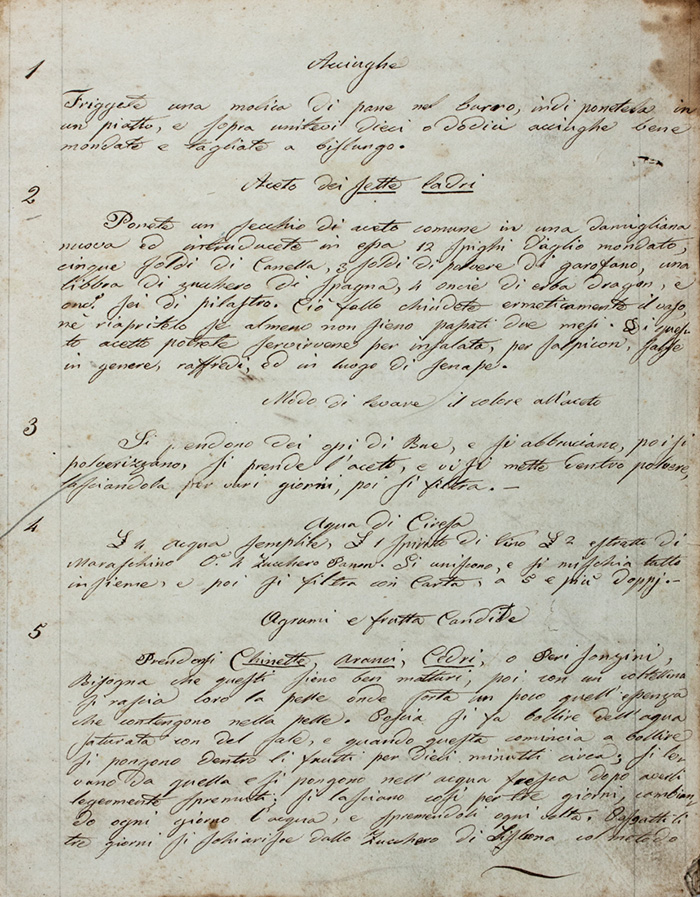 1
Acciughe
Friggete una molica di pane nel burro, indi ponetela in
un piatto, e sopra unitevi dieci o dodici acciughe bene
mondate e tagliate a bislungo.
2
Aceto dei sette ladri
Ponete un secchio di aceto comune in una damigliana
nuova ed introducete in essa 12 spighi d'aglio mondato,
cinque soldi di Canella, 3 soldi di polvere di garofano, una
libbra di zucchero di Spagna, 4 oncie di erba dragon, e
onc. sei di pilastro. Ciò fatto chiudete ermeticamente il vaso,
nè riapritelo se almeno non sieno passati due mesi. Di ques-
to acetto potrete servirvene per insalata, per salpicon, salse
in genere, raffredi, ed in luogo di senape.
Modo di levare il colore all'aceto
3
Si prendono dei ossi di Bue, e si abbruciano, poi si
polverizzano, si prende l'aceto, e vi si mette dentro polvere,
lasciandola per vari giorni, poi si filtra. —
4
Aqua di Ciresa
£ 4 acqua semplice, £ 1 spirito di vino £ 2 estratto di
Maraschino 4 Zucchero Si uniscono, e si mischia tutto
insieme, e poi si filtra con Carta, a 5 e più doppj. —
5
Agrumi e frutta Candite
Prendonsi Chinette, aranci, Cedri, o Peri
Bisogna che questi sieno ben matturi, poi con un coltellino
si rascia loro la pelle onde sorta un poco quell'essenza
che contengono nella pelle. Poscia si fa bollire dell'aqua
saturata con del sale, e quando questa comincia a bollire
si pongono dentro li frutti per dieci minutti circa; si le-
vano da quella e si pongono nell'acqua fresca dopo averli
legermente spremuti; si lasciano così per tre giorni, cambian-
do ogni giorno l'acqua, e spremendoli ogni volta. Passatti li
tre giorni si schiarisce dallo Zucchero di Lisbona col metodo